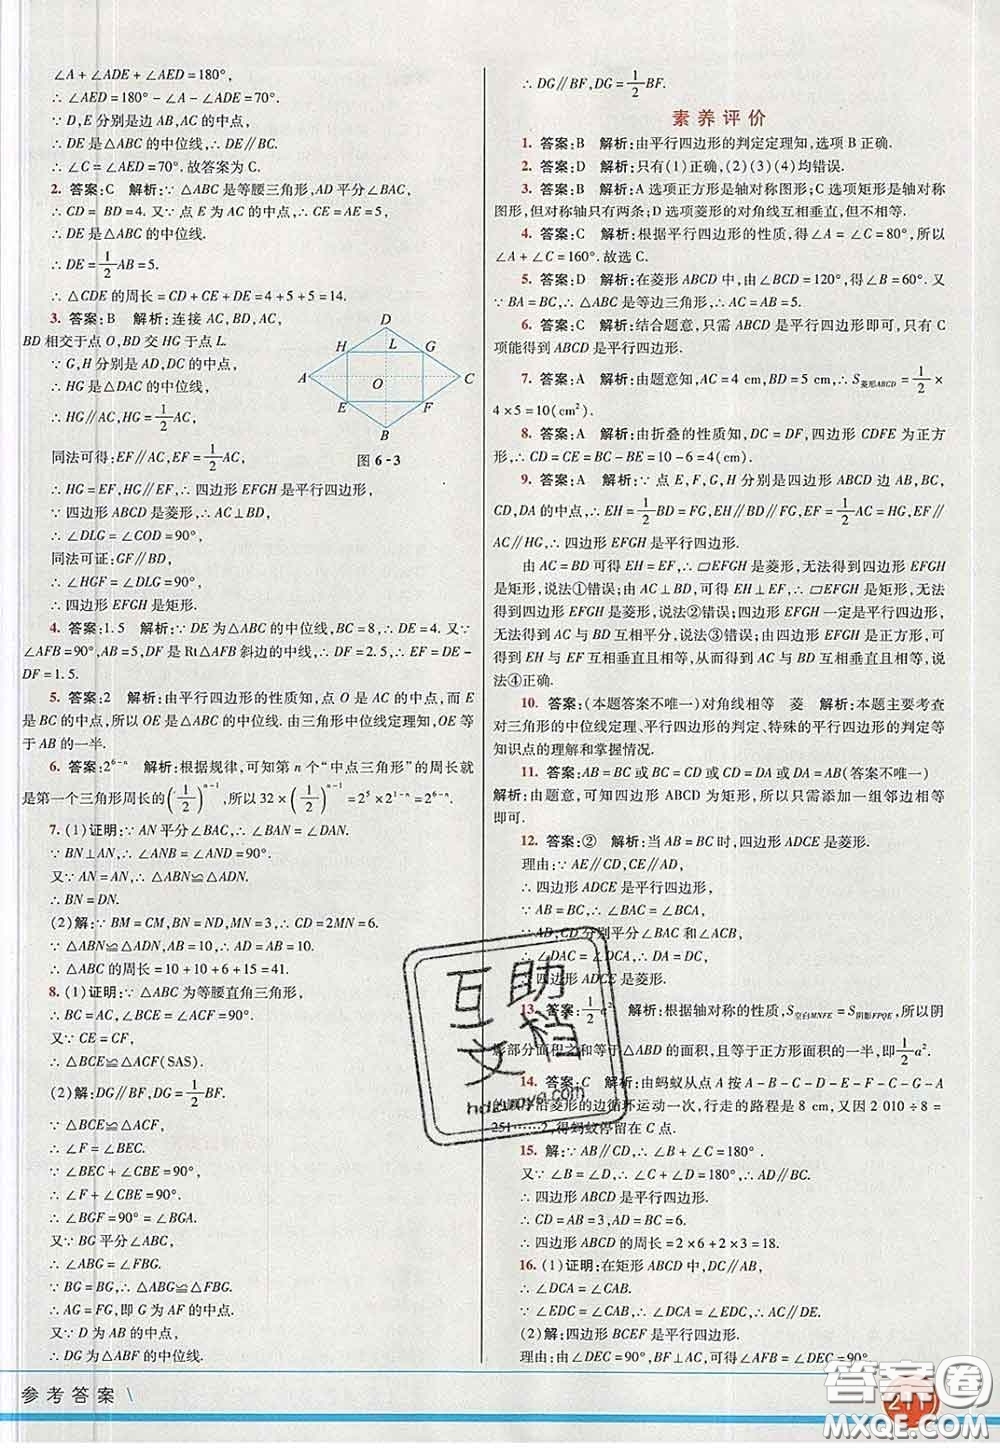 ∠A + ∠ADE + ∠AED = 180°,
∴ ∠AED = 180° - ∠A - ∠ADE = 70°.
∵ D,E 分别是边 AB,AC 的中点,
∴ DE 是△ABC 的中位线,
∴ ∠C = ∠AED = 70°. 故答案为 C.
2. 答案:C 解析:∵ △ABC 是等腰三角形,AD 平分∠BAC,
∴ CD = BD = 4. 又∵ 点 E 为 AC 的中点,∴ CE = AE = 5,
∴ DE 是△ABC 的中位线.
∴ DE = 1/2 AB = 5.
∴ △CDE 的周长 = CD + CE + DE = 4 + 5 + 5 = 14.
3. 答案:B 解析:连接 AC,BD,AC,
BD 相交于点 O,BD 交 HG 于点 L.
∵ G,H 分别是 AD,DC 的中点,
∴ HG 是△DAC 的中位线,
∴ HG∥AC,HG = 1/2 AC,
同法可得:EF∥AC,EF = 1/2 AC,
D
H L G
A O C
E F
B
图 6-3
∴ HG = EF,HG∥EF,∴ 四边形 EFGH 是平行四边形.
∵ 四边形 ABCD 是菱形,∴ AC⊥BD,
∴ ∠DLG = ∠COD = 90°,
同法可证:GF∥BD,
∴ ∠HGF = ∠DLG = 90°,
∴ 四边形 EFGH 是矩形.
4. 答案:1.5 解析:∵ DE 为△ABC 的中位线,BC = 8,∴ DE = 4. 又∵
∠AFB = 90°,AB = 5,DF 是 Rt△AFB 斜边的中线,∴ DF = 2.5,∴ EF = DE -
DF = 1.5.
5. 答案:2 解析:由平行四边形的性质知,点 O 是 AC 的中点,而 E
是 BC 的中点,所以 OE 是△ABC 的中位线. 由三角形中位线定理知,OE 等
于 AB 的一半.
6. 答案:2^{6-n} 解析:根据规律,可知第 n 个“中点三角形”的周长就
是第一个三角形周长的(1/2)^{n-1},所以 32 × (1/2)^{n-1} = 2^5 × 2^{1-n} = 2^{6-n}.
7. (1)证明:∵ AN 平分∠BAC,∴ ∠BAN = ∠DAN.
∵ BN⊥AN,∴ ∠ANB = ∠AND = 90°.
又∵ AN = AN,∴ △ABN≌△ADN.
∴ BN = DN.
(2)解:∵ BM = CM,BN = ND,MN = 3,∴ CD = 2MN = 6.
∵ △ABN≌△ADN,AB = 10,∴ AD = AB = 10.
∴ △ABC 的周长 = 10 + 10 + 6 + 15 = 41.
8. (1)证明:∵ △ABC 为等腰直角三角形,
∴ BC = AC,∠BCE = ∠ACF = 90°.
又∵ CE = CF,
∴ △BCE≌△ACF(SAS).
(2)解:DG∥BF,DG = 1/2 BF.
∵ △BCE≌△ACF,
∴ ∠F = ∠BEC.
∵ ∠BEC + ∠CBE = 90°,
∴ ∠F + ∠CBE = 90°.
∴ ∠BGF = 90° = ∠BGA.
又∵ BG 平分∠ABC,
∴ ∠ABG = ∠FBG.
∵ BG = BG,∴ △ABG≌△FBG.
∴ AG = FG,即 G 为 AF 的中点.
又∵ D 为 AB 的中点,
∴ DG 为△ABF 的中位线.
∴ DG∥BF,DG = 1/2 BF.
素养评价
1. 答案:B 解析:由平行四边形的判定定理知,选项 B 正确.
2. 答案:D 解析:只有(1)正确,(2)(3)(4)均错误.
3. 答案:B 解析:A 选项正方形是轴对称图形;C 选项矩形是轴对称
图形,但对称轴只有两条;D 选项菱形的对角线互相垂直,但不相等.
4. 答案:C 解析:根据平行四边形的性质,得∠A = ∠C = 80°,所以
∠A + ∠C = 160°. 故选 C.
5. 答案:D 解析:在菱形 ABCD 中,由∠BCD = 120°,得∠B = 60°. 又
∵ BA = BC,∴ △ABC 是等边三角形,∴ AC = AB = 5.
6. 答案:C 解析:结合题意,只需 ABCD 是平行四边形即可,只有 C
项能得到 ABCD 是平行四边形.
7. 答案:A 解析:由题意知,AC = 4 cm,BD = 5 cm,∴ S菱形ABCD = 1/2 ×
4 × 5 = 10(cm²).
8. 答案:A 解析:由折叠的性质知,DC = DF,四边形 CDFE 为正方
形,∴ CD = CE = BC - BE = 10 - 6 = 4(cm).
9. 答案:A 解析:∵ 点 E,F,G,H 分别是四边形 ABCD 边 AB,BC,
CD,DA 的中点,∴ EH = 1/2 BD = FG,EH∥BD∥FG,EF = 1/2 AC = HG,EF∥
AC∥HG,∴ 四边形 EFGH 是平行四边形.
由 AC = BD 可得 EH = EF,∴ ▱EFGH 是菱形,无法得到四边形 EFGH
是矩形,说法①错误;由 AC⊥BD,可得 EH⊥EF,∴ ▱EFGH 是矩形,无法
得到四边形 EFGH 是菱形,说法②错误;四边形 EFGH 一定是平行四边形,
无法得到 AC 与 BD 互相平分,说法③错误;由四边形 EFGH 是正方形,可
得到 EH 与 EF 互相垂直且相等,从而得到 AC 与 BD 互相垂直且相等,
说法④正确.
10. 答案:(本题答案不唯一)对角线相等 菱 解析:本题主要考查
对三角形的中位线定理、平行四边形的判定、特殊的平行四边形的判定等
知识点的理解和掌握情况.
11. 答案:AB = BC 或 BC = CD 或 CD = DA 或 DA = AB(答案不唯一)
解析:由题意,可知四边形 ABCD 为矩形,所以只需添加一组邻边相等
即可.
12. 答案:② 解析:当 AB = BC 时,四边形 ADCE 是菱形.
理由:∵ AE∥CD,CE∥AD,
∴ 四边形 ADCE 是平行四边形,
∵ AB = BC,∴ ∠BAC = ∠BCA,
∵ AD,CD 分别平分∠BAC 和∠ACB,
∴ ∠DAC = ∠DCA,∴ DA = DC,
∴ 四边形 ADCE 是菱形.
13. 答案:1/2 a² 解析:根据轴对称的性质,S空白MNFE = S阴影FPQE,所以阴
影部分面积之和等于△ABD 的面积,且等于正方形面积的一半,即 1/2 a².
14. 答案:C 解析:由蚂蚁从点 A 按 A - B - C - D - E - F - C - G - A
的顺序沿菱形的边循环运动一次,行走的路程是 8 cm,又因 2 010 ÷ 8 =
251……2,得蚂蚁停留在 C 点.
15. 解:∵ AB∥CD,∴ ∠B + ∠C = 180°.
又∵ ∠B = ∠D,∴ ∠C + ∠D = 180°,∴ AD∥BC.
∴ 四边形 ABCD 是平行四边形.
∴ CD = AB = 3,AD = BC = 6.
∴ 四边形 ABCD 的周长 = 2 × 6 + 2 × 3 = 18.
16. (1)证明:在矩形 ABCD 中,DC∥AB,
∴ ∠DCA = ∠CAB.
∵ ∠EDC = ∠CAB,∴ ∠EDC = ∠DCA,∴ AC∥DE.
(2)解:四边形 BCEF 是平行四边形.
理由:由∠DEC = 90°,BF⊥AC,可得∠AFB = ∠DEC = 90°.
互助
文档
hdzuoye.com
参考答案
211
答案圈
MXQE.COM